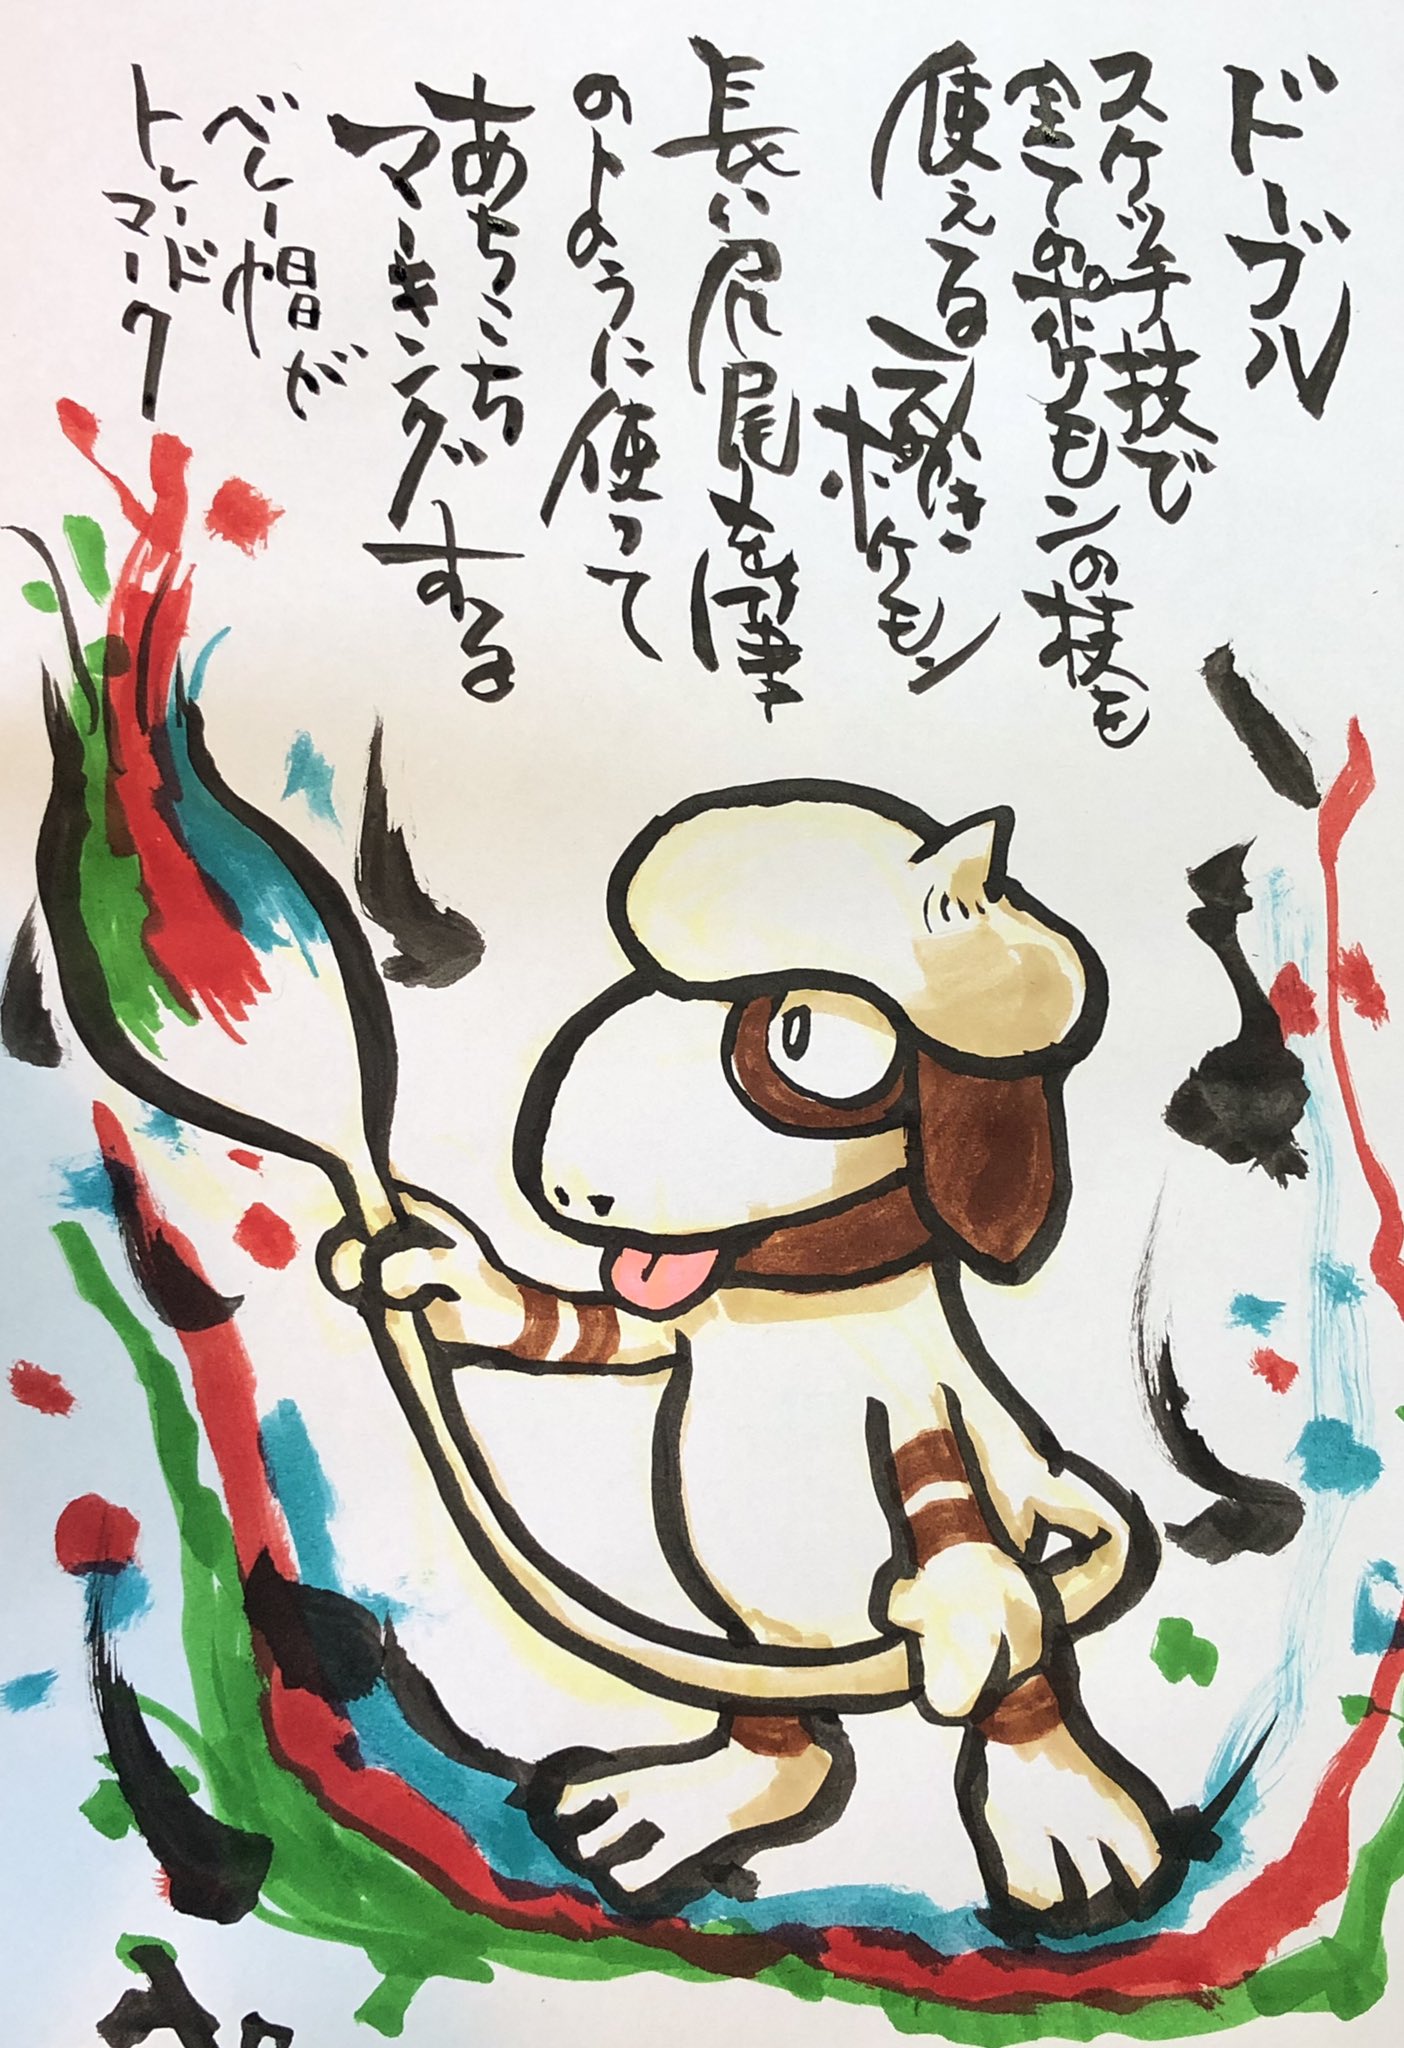 ドーブル
スケッチ技で
全てのポケモンの技を
使える
えかきポケモン
長い尻尾を筆
のように使って
あちこち
マーキングする
ベレー帽が
トレードマーク